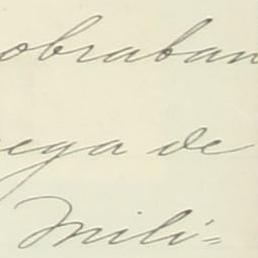 obraban
ega de
Mili=